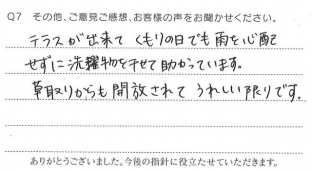 Q7 その他、ご意見ご感想、お客様の声をお聞かせください。
テラスが出来て くもりの日でも雨を心配
せずに洗濯物を干せて助かっています。
草取りからも開放されて うれしい限りです。
ありがとうございました。今後の指針に役立たせていただきます。